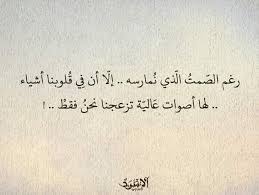 رغم الصّمتُ الّذي نُمارسه .. إلّا أن في قُلوبنا أشياء
.. لها أصوات عَاليّة تزعجنا نحنُ فقطُ .. !